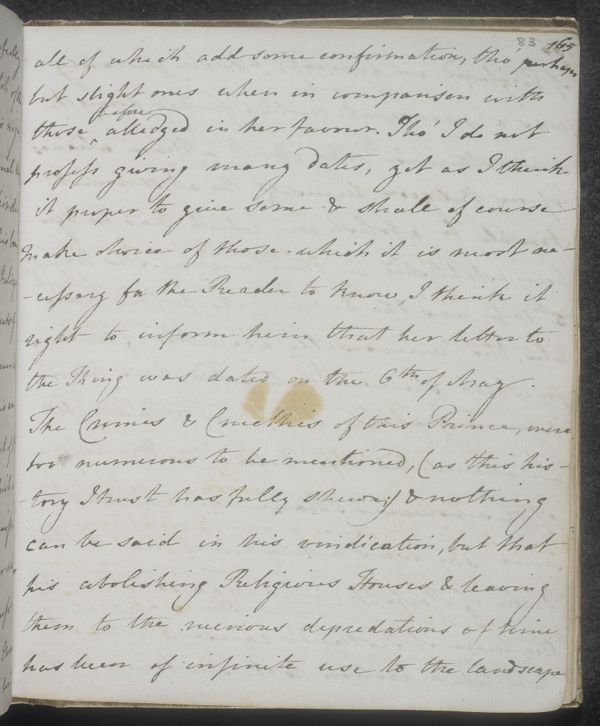 83 165
all of which add some confirmation, tho perhaps
but slight ones when in comparison with
those before alledged in her favour. Tho' I do not
profess giving many dates, yet as I think
it proper to give some & shall of course
make choice of those which it is most ne-
-cessary for the Reader to know, I think it
right to inform him that her letter to
the King was dated on the 6th of May.
The Crimes & Cruelties of this Prince, were
too numerous to be mentioned, (as this his-
-tory I trust has fully shewn;) & nothing
can be said in his vindication, but that
his abolishing Religious Houses & leaving
them to the ruinous depredations of time
has been of infinite use to the landscape